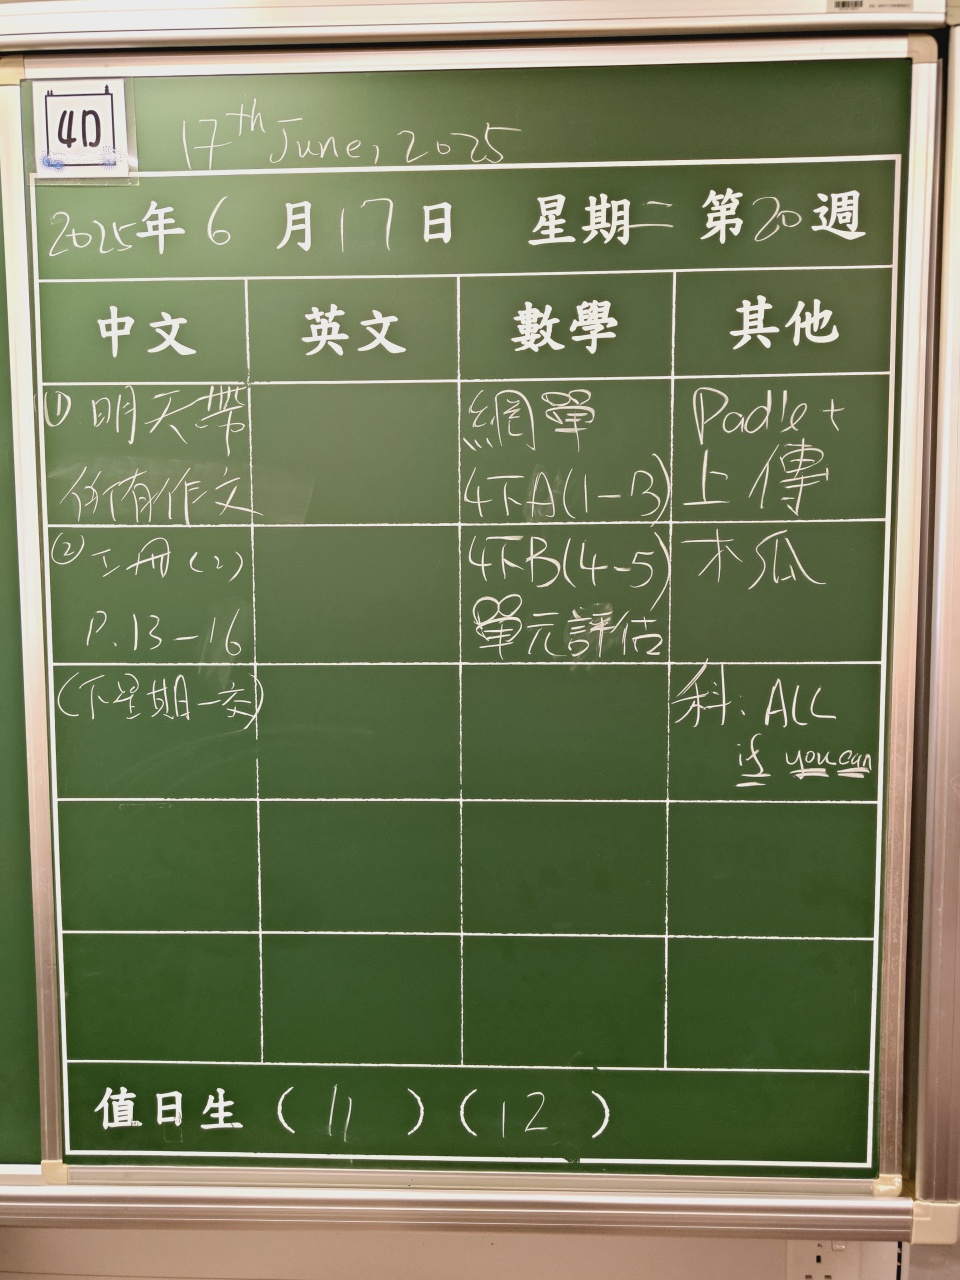 4D
17th June, 2025
2025年6月17日 星期二 第20週
中文 英文 數學 其他
① 明天帶
所有作文
② 工冊(2)
P.13-16
(下星期一交)
網單
4下A(1-3)
4下B(4-5)
單元評估
Padlet
上傳
木瓜
科: ALL
if you can
值日生 (11) (12)